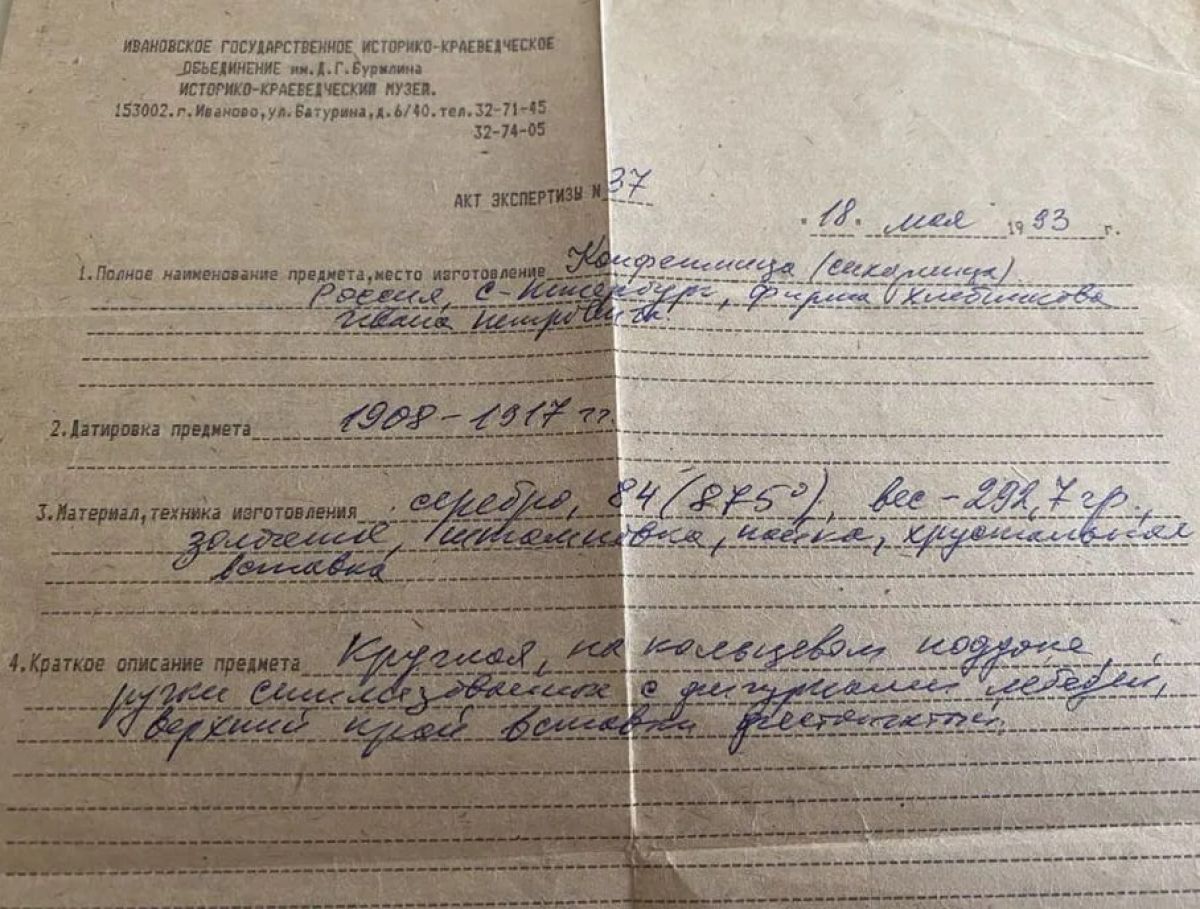 ИВАНОВСКОЕ ГОСУДАРСТВЕННОЕ ИСТОРИКО-КРАЕВЕДЧЕСКОЕ
ОБЬЕДИНЕНИЕ им.Д.Г.Бурылина
ИСТОРИКО-КРАЕВЕДЧЕСКИЙ МУЗЕЙ.
153002.г.Иваново,ул.Батурина,д.6/40.тел.32-71-45
32-74-05
АКТ ЭКСПЕРТИЗЫ N 37
"18" мая 1993 г.
1.Полное наименование предмета,место изготовление Конфетница (сахарница)
Россия, С-Петербург, фирма Хлебникова
Ивана Петровича
2.Датировка предмета 1908-1917 гг.
3.Материал,техника изготовления серебро, 84 (875°), вес - 292,7 гр.,
золочение, штамповка, пайка, хрустальная
вставка
4.Краткое описание предмета Круглая, на кольцевом поддоне,
ручки стилизованные с фигурками лебедей,
верхний край вставки фестончатый.